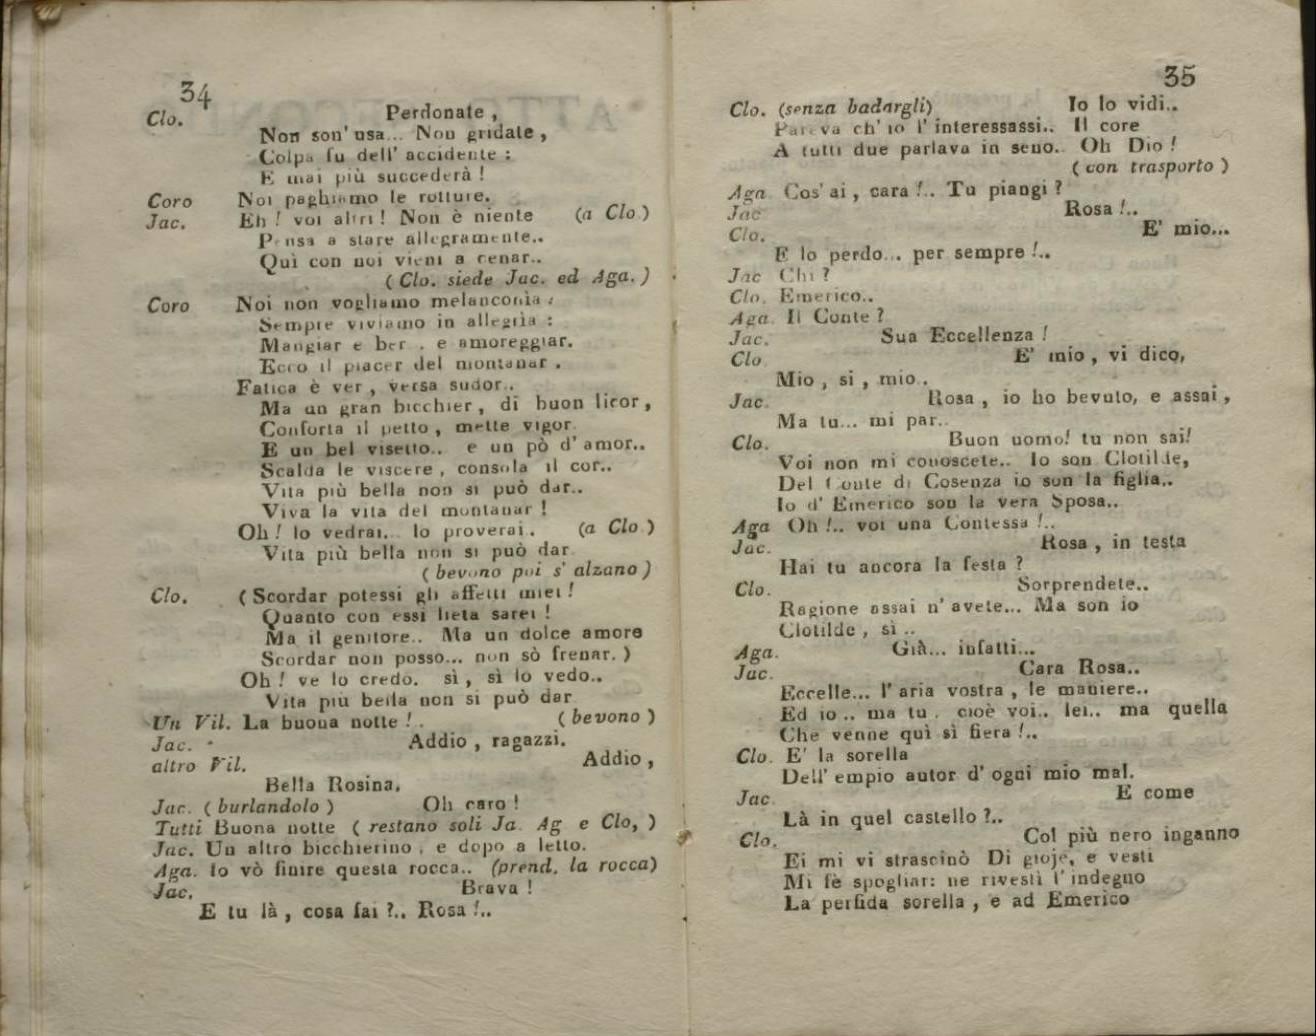 34
Clo. Perdonate ,
Non son' usa... Non gridate ,
Colpa fu dell' accidente :
E mai più succederà !
Coro Noi paghiamo le rotture.
Jac. Eh ! voi altri ! Non è niente (a Clo.)
Pensa a stare allegramente..
Quì con noi vieni a cenar..
( Clo. siede Jac. ed Aga. )
Coro Noi non vogliamo melanconìa :
Sempre viviamo in allegrìa :
Mangiar e ber . e amoreggiar.
Ecco il piacer del montanar .
Fatica è ver , versa sudor..
Ma un gran bicchier , di buon licor ,
Conforta il petto , mette vigor.
E un bel visetto.. e un pò d' amor..
Scalda le viscere , consola il cor..
Vita più bella non si può dar..
Viva la vita del montanar !
Oh ! lo vedrai.. lo proverai . (a Clo )
Vita più bella non si può dar.
( bevono poi s' alzano )
Clo. ( Scordar potessi gli affetti miei !
Quanto con essi lieta sarei !
Ma il genitore.. Ma un dolce amore
Scordar non posso... non sò frenar. )
Oh ! ve lo credo. sì , sì lo vedo..
Vita più bella non si può dar.
Un Vil. La buona notte ! . ( bevono )
Jac. Addio , ragazzi.
altro Vil. Addio ,
Bella Rosina.
Jac. ( burlandolo ) Oh caro !
Tutti Buona notte ( restano soli Ja. Ag e Clo, )
Jac. Un altro bicchierino . e dopo a letto.
Aga. Io vò finire questa rocca.. (prend. la rocca)
Jac. Brava !
E tu là , cosa fai ?.. Rosa !..
35
Clo. (senza badargli) Io lo vidi..
Pareva ch' io l' interessassi.. Il core
A tutti due parlava in seno.. Oh Dio !
( con trasporto )
Aga. Cos' ai , cara !.. Tu piangi ?
Jac Rosa !..
Clo. E' mio...
E lo perdo... per sempre !..
Jac Chi ?
Clo. Emerico..
Aga. Il Conte ?
Jac. Sua Eccellenza !
Clo E' mio , vi dico,
Mio , si , mio..
Jac. Rosa , io ho bevuto, e assai ,
Ma tu... mi par..
Clo. Buon uomo! tu non sai!
Voi non mi conoscete.. Io son Clotilde,
Del Conte di Cosenza io son la figlia..
Io d' Emerico son la vera Sposa..
Aga Oh !.. voi una Contessa !..
Jac. Rosa , in testa
Hai tu ancora la festa ?
Clo. Sorprendete..
Ragione assai n' avete... Ma son io
Clotilde , sì ..
Aga. Già... infatti...
Jac. Cara Rosa..
Eccelle... l' aria vostra , le maniere..
Ed io .. ma tu . cioè voi.. lei.. ma quella
Che venne quì sì fiera !..
Clo. E' la sorella
Dell' empio autor d' ogni mio mal.
Jac. E come
Là in quel castello ?..
Clo. Col più nero inganno
Ei mi vi strascinò Di gioje, e vesti
Mi fè spogliar: ne rivestì l' indegno
La perfida sorella , e ad Emerico